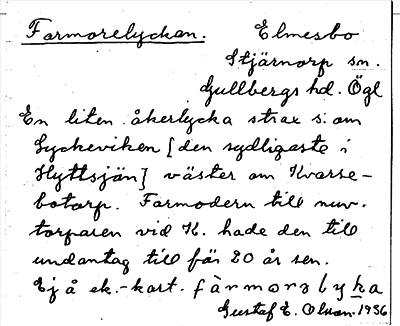 Farmorelyckan. Elmesbo
Stjärnorp sn.
Gullbergs hd. Ögl
En liten åkerlycka strax s. om
Lyckeviken [den sydligaste i
Hyttsjön] väster om Kvarse-
botorp. Farmodern till nuv.
torparen vid K. hade den till
undantag till för 20 år sen.
Ej å ek.-kart. fàrmorəlyka
Gustaf E. Olson. 1936